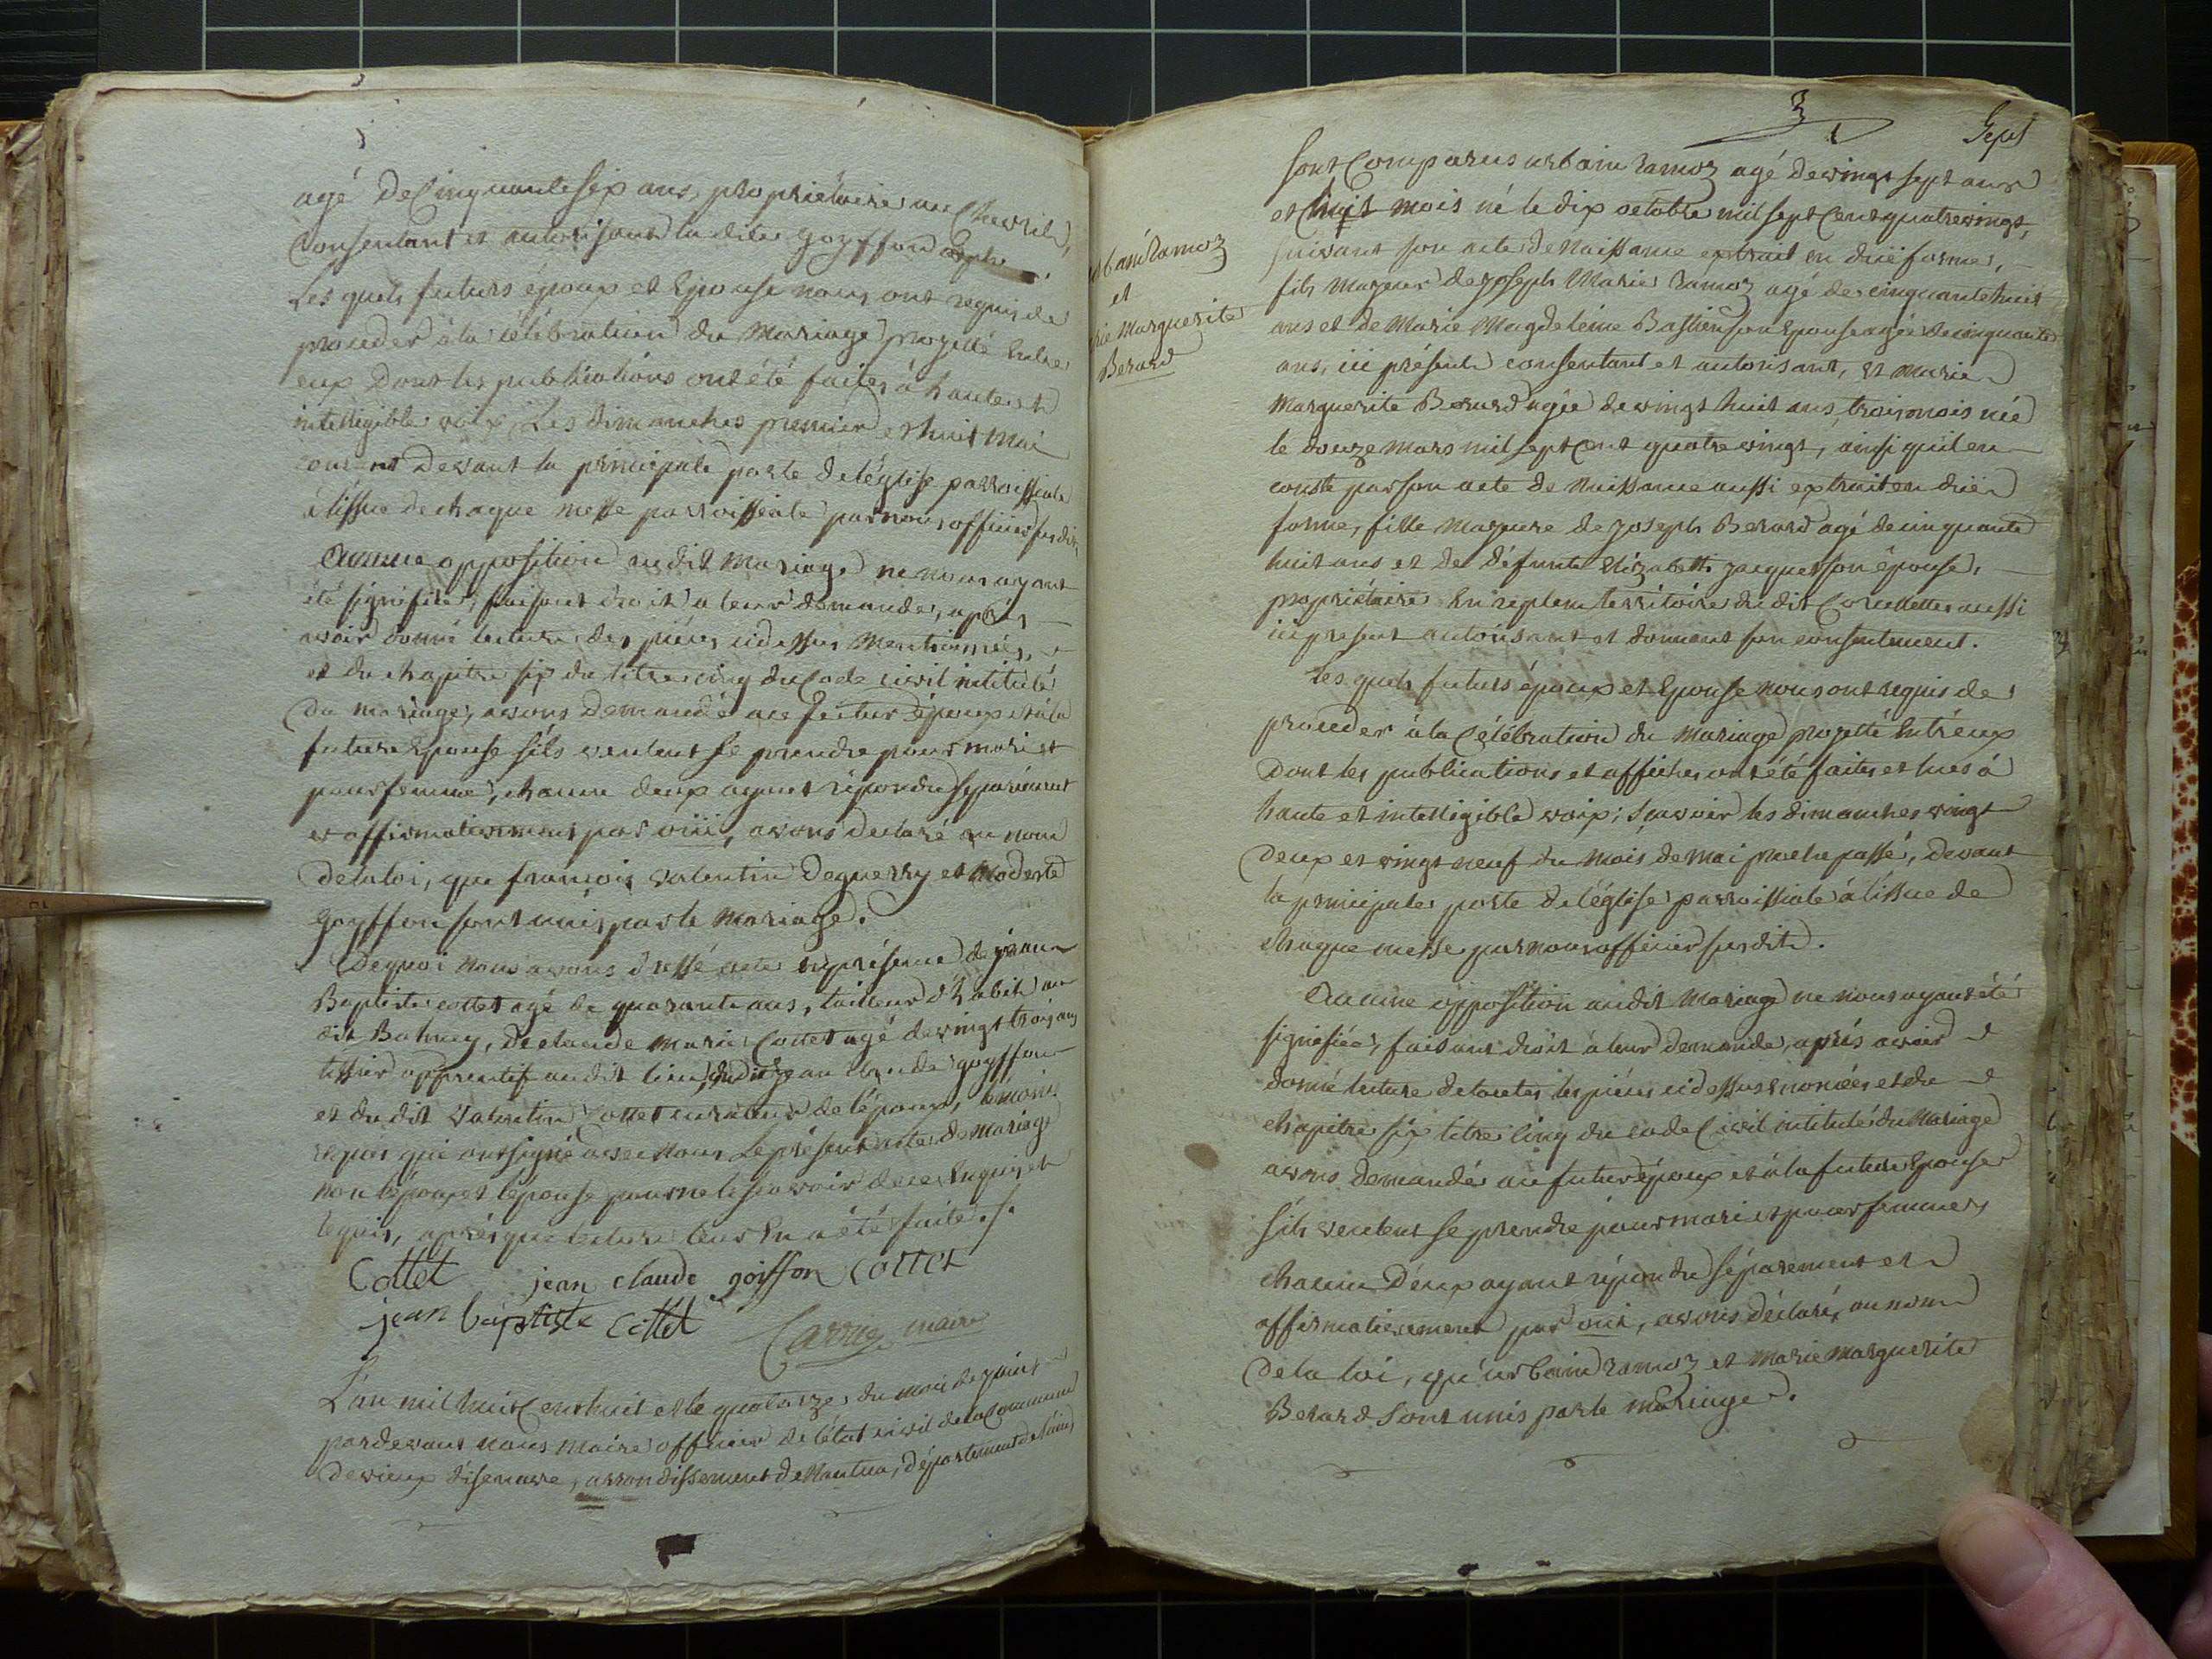 agé de Cinquante six ans, propriétaire au Chevril,
Consentant et autorisant la dite goyffon
Les quels futurs époux et Epouse nous ont requis de
proceder à la célébration du Mariage projetté Entre
eux Dont les publications ont été faites à haute et
intelligible voix, Les dimanches premier et huit mai
courant Devant la principale porte de l'église parroissiale
à l'issue de chaque messe parroissiale par nous officier susdit,
Aucune opposition au dit Mariage ne nous ayant
été signifiée, faisant droit a leur demande, après
avoir donné lecture des pièces cidessus Mentionnées,
et du chapitre six du titre cinq du Code civil intitulé
Du mariage, avons Demandé au futur époux et à la
future Epouse s'ils veulent se prendre pour mari et
pour femme, chacun deux ayant répondu séparément
et affirmativement par oüi, avons declaré au nom
De la loi, que françois valentin Deguerry et Modeste
goyffon sont unis par le Mariage.
De quoi nous avons dressé acte en présence de jean
Baptiste cottet agé de quarante ans, tailleur d'habit au
dit , de claude Marie Cottet agé de vingt trois ans
tissier apprentif au dit lieu, dudit jean claude goyffon
et du dit valentin Cottet curateur de l'époux, témoins
requis qui ont signé avec Nous Le présent acte de mariage
non l'époux et l'épouse pour ne le sçavoir de ce Enquis et
requis, après que lecture leur En a été faite ./.
Cottet jean claude goiffon Cottet
jean baptiste Cottet
Carrier maire
L'an mil huit Cent huit et le quatorze du mois de juin
pardevant nous Maire officier de l'état civil de la Commune
De vieux d'isenave, arrondissement de Nantua, département de l'ain
3
Sept
urbain ramoz
et
Marie Marguerite
Berard
sont Comparus urbain ramoz agé de vingt sept ans
et huit mois né le dix octobre mil sept Cent quatrevingt,
suivant son acte de Naissance extrait en düe forme,
fils Majeur de joseph Marie ramoz agé de cinquante huit
ans et de Marie Magdeleine Bastien son Epouse agée de cinquante
ans, ici présents consentant et autorisant, Et Marie
Marguerite Berard agée de vingt huit ans, trois mois née
le douze Mars mil sept Cent quatre vingt, ainsi qu'il en
conste par son acte de Naissance aussi extrait en düe
forme, fille Majeure de joseph Berard agé de cinquante
huit ans et de défunte Elizabeth jacquet son épouse,
propriétaire territoire du dit Corcellettes aussi
ici present autorisant et donnant son consentement.
Les quels futurs époux et Epouse nous ont requis de
proceder à la Célébration du Mariage projetté Entr'eux
Dont les publications et affiches ont été faites et lues à
haute et intelligible voix; sçavoir les dimanches vingt
Deux et vingt neuf du Mois de mai proche passé, devant
la principale porte de l'église parroissiale à l'issue de
chaque messe par nous officier susdit.
Aucune opposition audit Mariage ne nous ayant été
signifiée, faisant droit à leur demande, après avoir
donné lecture de toutes les pièces cidessus enoncées et du
chapitre six titre Cinq du code Civil intitulé du Mariage
avons Demandé au futur époux et à la future Epouse
s'ils veulent se prendre pour mari et pour femme,
chacun D'eux ayant répondu séparement et
affirmativement par oui, avons déclaré, au nom
De la loi, qu'urbain ramoz et Marie Marguerite
Berard sont unis par le mariage.